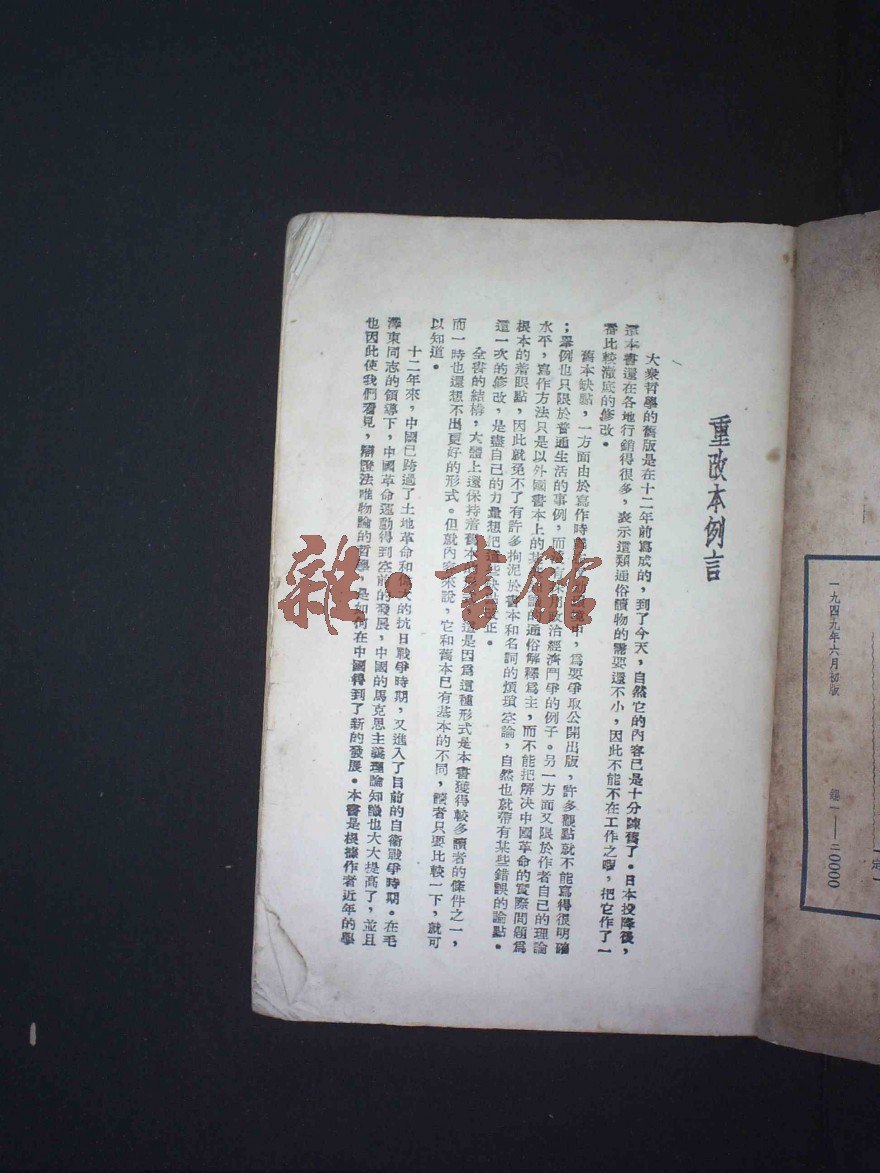 重改本例言
大衆哲學的舊版是在十二年前寫成的，到了今天，自然它的內容已是十分陳舊了。日本投降後，
這本書還在各地行銷得很多，表示這類通俗讀物的需要還不小，因此不能不在工作之暇，把它作了一
番比較澈底的修改。
舊本缺點，一方面由於寫作時 環境中，爲要爭取公開出版，許多觀點就不能寫得很明確
；舉例也只限於普通生活的事例，而 政治經濟鬥爭的例子。另一方面又限於作者自己的理論
水平，寫作方法只是以外國書本上的某 的通俗解釋爲主，而不能把解決中國革命的實際問題爲
根本的着眼點，因此就免不了有許多拘泥於書本和名詞的煩瑣空論，自然也就帶有某些錯誤的論點。
這一次的修改，是盡自己的力量想把這些缺點 正。
全書的結構，大體上還保持着舊本的 這是因爲這種形式是本書獲得較多讀者的條件之一，
而一時也還想不出更好的形式。但就內容來說，它和舊本已有基本的不同，讀者只要比較一下，就可
以知道。
十二年來，中國已跨過了土地革命和偉大的抗日戰爭時期，又進入了目前的自衛戰爭時期。在毛
澤東同志的領導下，中國革命運動得到空前的發展，中國的馬克思主義理論知識也大大提高了，並且
也因此使我們看見，辯證法唯物論的哲學，是如何在中國得到了新的發展。本書是根據作者近年的學
一九四九年六月初版
錫一——二0000
定
雜·書館